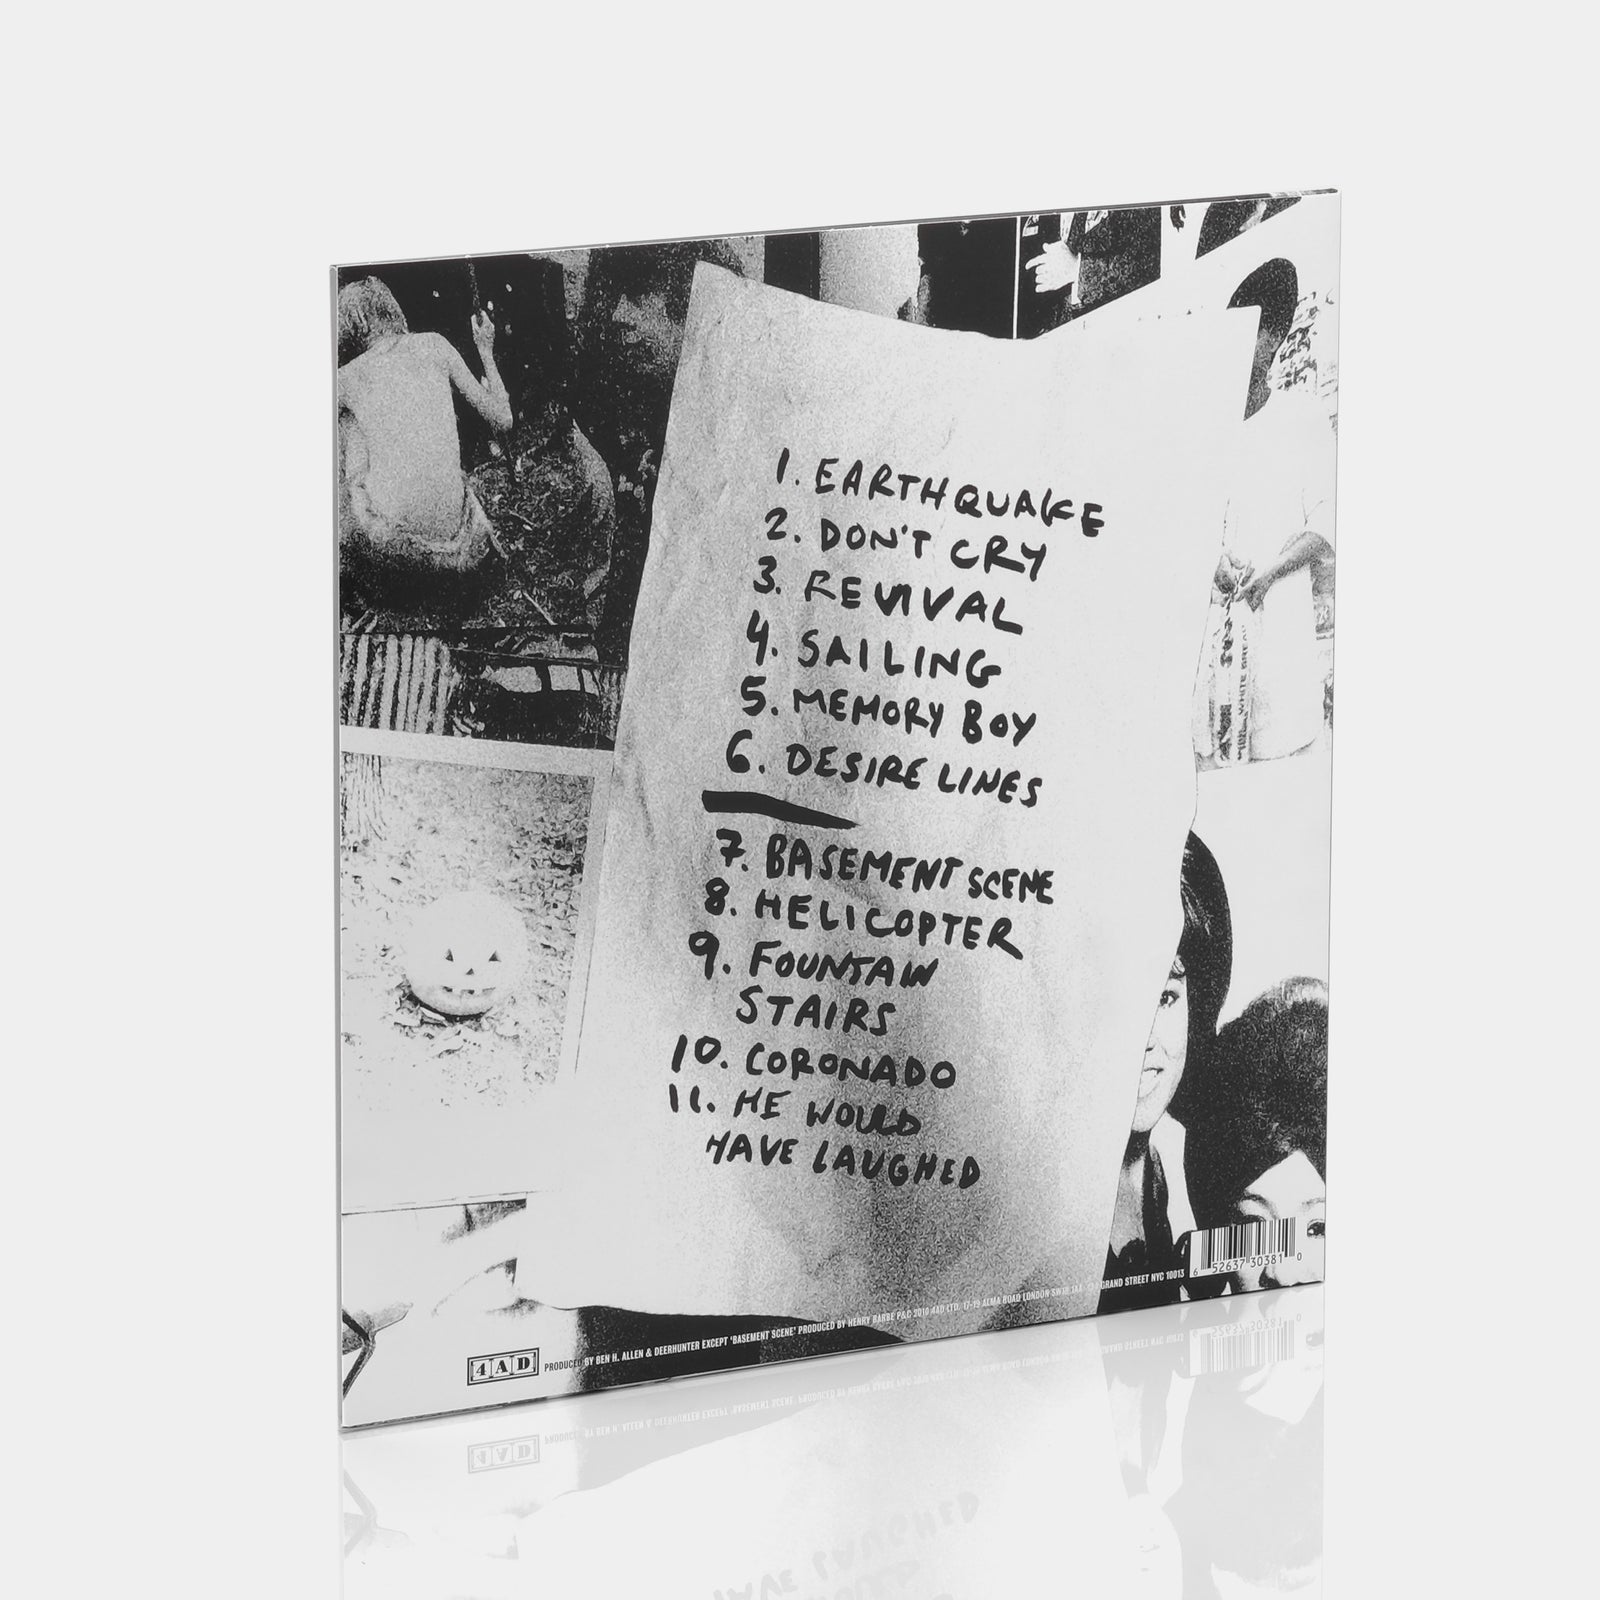 1. EARTHQUAKE
2. DON'T CRY
3. REVIVAL
4. SAILING
5. MEMORY BOY
6. DESIRE LINES
7. BASEMENT SCENE
8. HELICOPTER
9. FOUNTAIN
STAIRS
10. CORONADO
11. HE WOULD
HAVE LAUGHED
WHITE BREAD
4AD PRODUCED BY BEN H. ALLEN & DEERHUNTER EXCEPT 'BASEMENT SCENE' PRODUCED BY HENRY BARBE P&C 2010 4AD LTD. 17-19 ALMA ROAD LONDON SW18 1AA. GRAND STREET NYC 10013
6 52637 30381 0